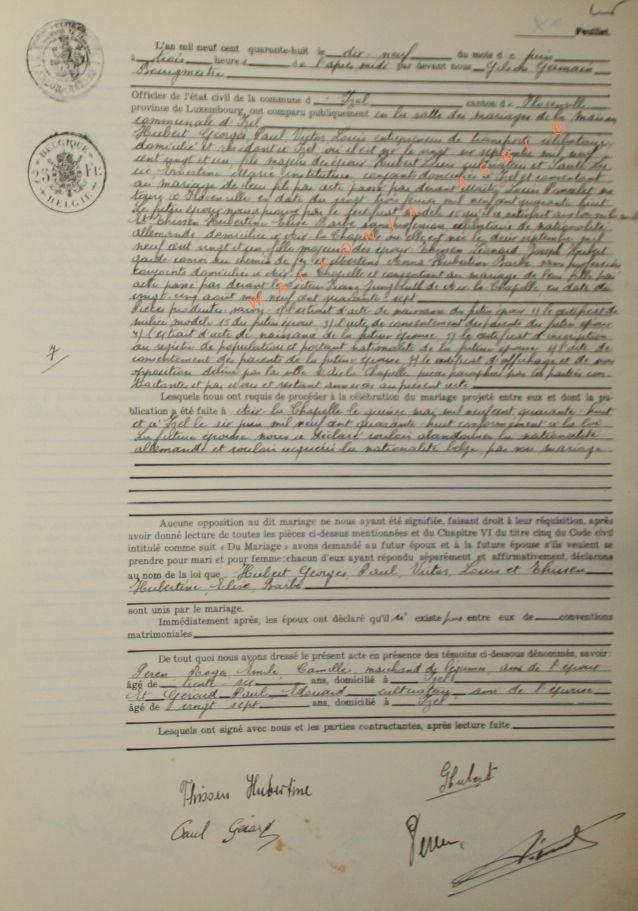 Feuillet.
L'an mil neuf cent quarante-huit le dix neuf du mois de juin
à trois heures de l'après midi par devant nous Gilidu Germain
Bourgmestre
Officier de l'état civil de la commune d' Izel canton de Florenville
province de Luxembourg, ont comparu publiquement en la salle des mariages de la maison
communale d'Izel
Hubert Georges Paul Victor Louis entrepreneur de transport célibataire
domicilié et résidant à Izel où il est né le vingt six septembre mil neuf
cent vingt et un fils majeur des époux Hubert
institutrice conjoints domiciliés à Izel et consentant
au mariage de leur fils par acte passé par devant Maître Louis
à Florenville en date du vingt trois février mil neuf cent quarante huit
Le futur époux nous a prouvé par le certificat modèle 15 qu'il a satisfait aux lois sur la milice
Et Thissen Hubertine Elise Barbe sans profession célibataire de nationalité
allemande domiciliée à Aix la Chapelle où elle est née le deux septembre mil
neuf cent vingt et un fille majeure des époux Thissen Léonard Joseph Hubert
garde convoi au chemin de fer et Mertens Anna Hubertine Barbe sans profession
conjoints domiciliés à Aix la Chapelle et consentant au mariage de leur fille par
acte passé par devant le notaire Franz Jungbluth de Aix la Chapelle en date du
vingt-cinq août mil neuf cent quarante sept
Pièces produites savoir 1) l'extrait d'acte de naissance du futur époux 2) le certificat de
milice modèle 15 du futur époux 3) l'acte de consentement des parents du futur époux
4) l'extrait d'acte de naissance de la future épouse 5) le certificat d'inscription
au registre de population et portant nationalité de la future épouse 6) l'acte de
consentement des parents de la future épouse 7) le certificat d'affichage et de non
opposition délivré par la ville d'Aix la Chapelle pièces paraphées par les parties con
tractantes et par nous et restant annexées au présent acte
Lesquels nous ont requis de procéder à la célébration du mariage projeté entre eux et dont la pu-
blication a été faite à Aix la Chapelle le quinze mai mil neuf cent quarante huit
et à Izel le six juin mil neuf cent quarante huit conformément à la loi
La future épouse nous a déclaré vouloir abandonner la nationalité
allemande et vouloir acquérir la nationalité belge par son mariage
7
Aucune opposition au dit mariage ne nous ayant été signifiée, faisant droit à leur réquisition, après
avoir donné lecture de toutes les pièces ci-dessus mentionnées et du Chapitre VI du titre cinq du Code civil
intitulé comme suit « Du Mariage » avons demandé au futur époux et à la future épouse s'ils veulent se
prendre pour mari et pour femme: chacun d'eux ayant répondu séparément et affirmativement, déclarons
au nom de la loi que Hubert Georges, Paul, Victor, Louis et Thissen
Hubertine Elise, Barbe
sont unis par le mariage.
Immédiatement après, les époux ont déclaré qu'il n' existe pas entre eux de conventions
matrimoniales
De tout quoi nous avons dressé le présent acte en présence des témoins ci-dessous dénommés, savoir:
Peren Roger Emile Camille, marchand de légumes, ami de l'époux
âgé de trente six ans, domicilié à Izel
Et Gérard Paul Edouard cultivateur, ami de l'époux
âgé de vingt sept ans, domicilié à Izel
Lesquels ont signé avec nous et les parties contractantes, après lecture faite
Thissen Hubertine
GHubert
Paul Gérard
Peren
BELGIQUE
25 FR
BELGIE
WALLONIA ASBL